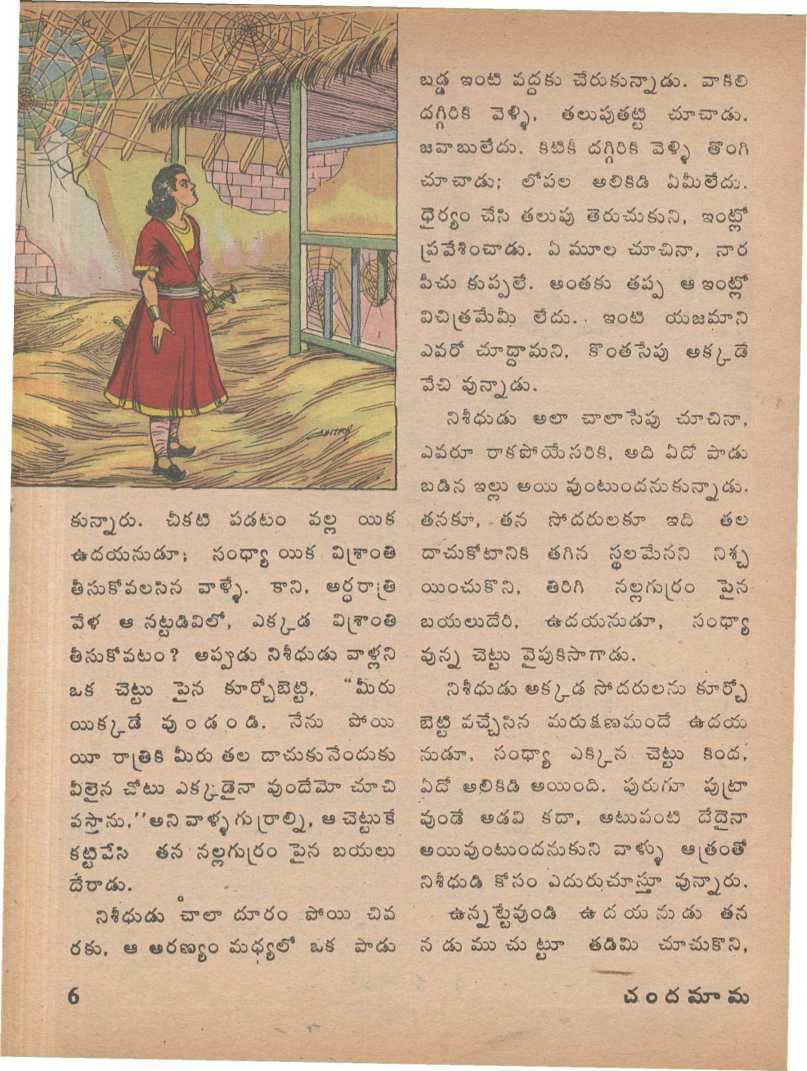 కున్నారు. చీకటి పడటం వల్ల యిక
ఉదయనుడూ; సంధ్యా యిక విశ్రాంతి
తీసుకోవలసిన వాళ్ళే. కాని, అర్ధరాత్రి
వేళ ఆ నట్టడివిలో, ఎక్కడ విశ్రాంతి
తీసుకోవటం? అప్పుడు నిశీధుడు వాళ్లని
ఒక చెట్టు పైన కూర్చోబెట్టి, “మీరు
యిక్కడే వుండండి. నేను పోయి
యీ రాత్రికి మీరు తల దాచుకునేందుకు
వీలైన చోటు ఎక్కడైనా వుందేమో చూచి
వస్తాను,’’అని వాళ్ళ గుర్రాల్ని, ఆ చెట్టుకే
కట్టివేసి తన నల్లగుర్రం పైన బయలు
దేరాడు.
నిశీధుడు చాలా దూరం పోయి చివ
రకు, ఆ అరణ్యం మధ్యలో ఒక పాడు
బడ్డ ఇంటి వద్దకు చేరుకున్నాడు. వాకిలి
దగ్గిరికి వెళ్ళి, తలుపుతట్టి చూచాడు.
జవాబులేదు. కిటికీ దగ్గిరికి వెళ్ళి తొంగి
చూచాడు; లోపల అలికిడి ఏమీలేదు.
ధైర్యం చేసి తలుపు తెరుచుకుని, ఇంట్లో
ప్రవేశించాడు. ఏ మూల చూచినా, నార
పీచు కుప్పలే. అంతకు తప్ప ఆ ఇంట్లో
విచిత్రమేమీ లేదు. ఇంటి యజమాని
ఎవరో చూద్దామని, కొంతసేపు అక్కడే
వేచి వున్నాడు.
నిశీధుడు అలా చాలాసేపు చూచినా,
ఎవరూ రాకపోయేసరికి, అది ఏదో పాడు
బడిన ఇల్లు అయి వుంటుందనుకున్నాడు.
తనకూ, తన సోదరులకూ ఇది తల
దాచుకోటానికి తగిన స్థలమేనని నిశ్చ
యించుకొని, తిరిగి నల్లగుర్రం పైన
బయలుదేరి, ఉదయనుడూ, సంధ్యా
వున్న చెట్టు వైపుకిసాగాడు.
నిశీధుడు అక్కడ సోదరులను కూర్చో
బెట్టి వచ్చేసిన మరుక్షణమందే ఉదయ
నుడూ, సంధ్యా ఎక్కిన చెట్టు కింద,
ఏదో అలికిడి అయింది. పురుగూ పుట్రా
వుండే అడవి కదా, అటువంటి దేదైనా
అయివుంటుందనుకుని వాళ్ళు ఆత్రంతో
నిశీధుడి కోసం ఎదురుచూస్తూ వున్నారు.
ఉన్నట్టేవుండి ఉదయనుడు తన
నడుముచుట్టూ తడిమి చూచుకొని,
6
చందమామ